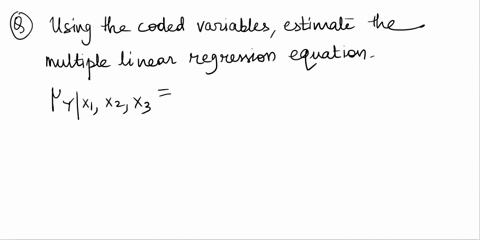 Q Using the coded variables, estimate the
multiple linear regression equation.
μY|x1, x2, x3 =